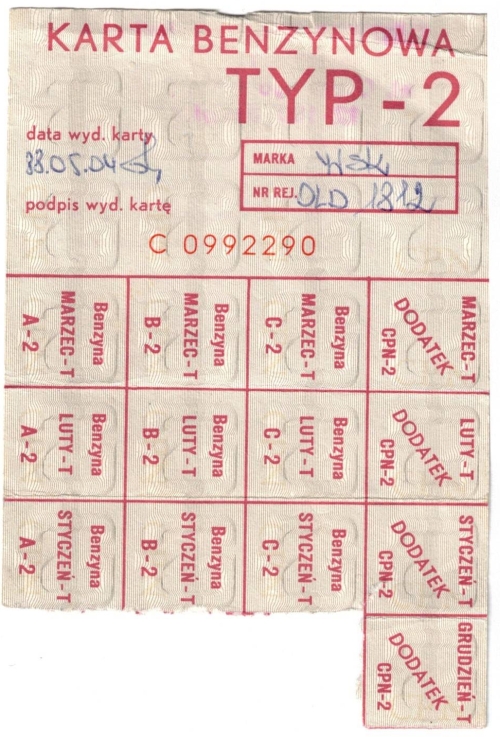 KARTA BENZYNOWA
TYP-2
data wyd. karty
88.05.04
podpis wyd. kartę
MARKA WSK
NR REJ. OLD 1812
C 0992290
Benzyna MARZEC-T A-2
Benzyna MARZEC-T B-2
Benzyna MARZEC-T C-2
MARZEC-T DODATEK CPN-2
Benzyna LUTY-T A-2
Benzyna LUTY-T B-2
Benzyna LUTY-T C-2
LUTY-T DODATEK CPN-2
Benzyna STYCZEŃ-T A-2
Benzyna STYCZEŃ-T B-2
Benzyna STYCZEŃ-T C-2
STYCZEŃ-T DODATEK CPN-2
GRUDZIEŃ-T DODATEK CPN-2